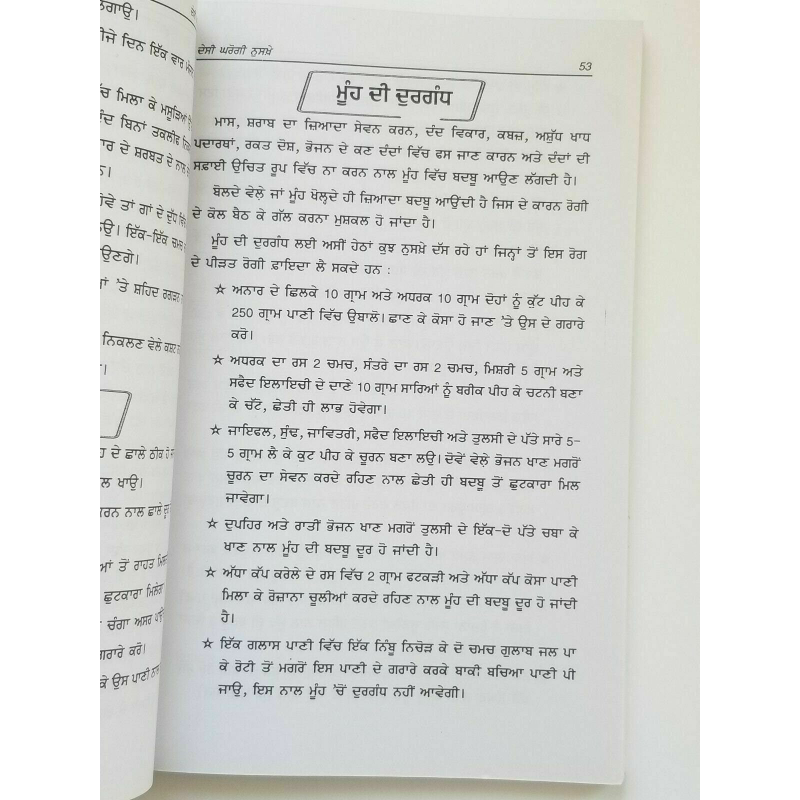 ਗਾਉ।
ੀਜੇ ਦਿਨ ਇੱਕ ਵਾਰ
ੱਚ ਮਿਲਾ ਕੇ ਮਸੂੜਿਆਂ
ੰਦ ਬਿਨਾਂ ਤਕਲੀਫ਼
ਾਰ ਦੇ ਸ਼ਰਬਤ ਦੇ ਨਾਲ
ਹੋਵੇ ਤਾਂ ਗਾਂ ਦੇ ਦੁੱਧ ਵਿੱ
ਉ। ਇੱਕ-ਇੱਕ ਚਮਚ
ਉਣਗੇ।
ਾਂ 'ਤੇ ਸ਼ਹਿਦ ਰਗੜਨ
ਨਿਕਲਣ ਵੇਲੇ ਕਸ਼ਟ
ਹ ਦੇ ਛਾਲੇ ਠੀਕ ਹੋ ਜ
ਲ ਖਾਉ।
ਰਨ ਨਾਲ ਛਾਲੇ ਦੂ
ਆਂ ਤੋਂ ਰਾਹਤ ਮਿਲ
ਛੁਟਕਾਰਾ ਮਿਲੇਗਾ
ਚੰਗਾ ਅਸਰ ਪਵੇ
ਗਰਾਰੇ ਕਰੋ।
ਕੇ ਉਸ ਪਾਣੀ ਨਾਲ
ਦੇਸੀ ਘਰੋਗੀ ਨੁਸਖ਼ੇ 53
ਮੂੰਹ ਦੀ ਦੁਰਗੰਧ
ਮਾਸ, ਸ਼ਰਾਬ ਦਾ ਜ਼ਿਆਦਾ ਸੇਵਨ ਕਰਨ, ਦੰਦ ਵਿਕਾਰ, ਕਬਜ਼, ਅਸ਼ੁੱਧ ਖਾਧ
ਪਦਾਰਥਾਂ, ਰਕਤ ਦੋਸ਼, ਭੋਜਨ ਦੇ ਕਣ ਦੰਦਾਂ ਵਿੱਚ ਫਸ ਜਾਣ ਕਾਰਨ ਅਤੇ ਦੰਦਾਂ ਦੀ
ਸਫ਼ਾਈ ਉਚਿਤ ਰੂਪ ਵਿੱਚ ਨਾ ਕਰਨ ਨਾਲ ਮੂੰਹ ਵਿੱਚ ਬਦਬੂ ਆਉਣ ਲੱਗਦੀ ਹੈ।
ਬੋਲਦੇ ਵੇਲੇ ਜਾਂ ਮੂੰਹ ਖੋਲ੍ਹਦੇ ਹੀ ਜ਼ਿਆਦਾ ਬਦਬੂ ਆਉਂਦੀ ਹੈ ਜਿਸ ਦੇ ਕਾਰਨ ਰੋਗੀ
ਦੇ ਕੋਲ ਬੈਠ ਕੇ ਗੱਲ ਕਰਨਾ ਮੁਸ਼ਕਲ ਹੋ ਜਾਂਦਾ ਹੈ।
ਮੂੰਹ ਦੀ ਦੁਰਗੰਧ ਲਈ ਅਸੀਂ ਹੇਠਾਂ ਕੁਝ ਨੁਸਖ਼ੇ ਦੱਸ ਰਹੇ ਹਾਂ ਜਿਨ੍ਹਾਂ ਤੋਂ ਇਸ ਰੋਗ
ਦੇ ਪੀੜਤ ਰੋਗੀ ਫ਼ਾਇਦਾ ਲੈ ਸਕਦੇ ਹਨ :
☆ ਅਨਾਰ ਦੇ ਛਿਲਕੇ 10 ਗ੍ਰਾਮ ਅਤੇ ਅਧਰਕ 10 ਗ੍ਰਾਮ ਦੋਹਾਂ ਨੂੰ ਕੁੱਟ ਪੀਹ ਕੇ
250 ਗ੍ਰਾਮ ਪਾਣੀ ਵਿੱਚ ਉਬਾਲੋ। ਛਾਣ ਕੇ ਕੋਸਾ ਹੋ ਜਾਣ 'ਤੇ ਉਸ ਦੇ ਗਰਾਰੇ
ਕਰੋ।
☆ ਅਧਰਕ ਦਾ ਰਸ 2 ਚਮਚ, ਸੰਤਰੇ ਦਾ ਰਸ 2 ਚਮਚ, ਮਿਸ਼ਰੀ 5 ਗ੍ਰਾਮ ਅਤੇ
ਸਫੈਦ ਇਲਾਇਚੀ ਦੇ ਦਾਣੇ 10 ਗ੍ਰਾਮ ਸਾਰਿਆਂ ਨੂੰ ਬਰੀਕ ਪੀਹ ਕੇ ਚਟਨੀ ਬਣਾ
ਕੇ ਚੱਟੋ, ਛੇਤੀ ਹੀ ਲਾਭ ਹੋਵੇਗਾ।
☆ ਜਾਇਫਲ, ਸੁੰਢ, ਜਾਵਿਤਰੀ, ਸਫੈਦ ਇਲਾਇਚੀ ਅਤੇ ਤੁਲਸੀ ਦੇ ਪੱਤੇ ਸਾਰੇ 5-
5 ਗ੍ਰਾਮ ਲੈ ਕੇ ਕੁਟ ਪੀਹ ਕੇ ਚੂਰਨ ਬਣਾ ਲਉ। ਦੋਵੇਂ ਵੇਲੇ ਭੋਜਨ ਖਾਣ ਮਗਰੋਂ
ਚੂਰਨ ਦਾ ਸੇਵਨ ਕਰਦੇ ਰਹਿਣ ਨਾਲ ਛੇਤੀ ਹੀ ਬਦਬੂ ਤੋਂ ਛੁਟਕਾਰਾ ਮਿਲ
ਜਾਵੇਗਾ।
☆ ਦੁਪਹਿਰ ਅਤੇ ਰਾਤੀਂ ਭੋਜਨ ਖਾਣ ਮਗਰੋਂ ਤੁਲਸੀ ਦੇ ਇੱਕ-ਦੋ ਪੱਤੇ ਚਬਾ ਕੇ
ਖਾਣ ਨਾਲ ਮੂੰਹ ਦੀ ਬਦਬੂ ਦੂਰ ਹੋ ਜਾਂਦੀ ਹੈ।
☆ ਅੱਧਾ ਕੱਪ ਕਰੇਲੇ ਦੇ ਰਸ ਵਿੱਚ 2 ਗ੍ਰਾਮ ਫਟਕੜੀ ਅਤੇ ਅੱਧਾ ਕੱਪ ਕੋਸਾ ਪਾਣੀ
ਮਿਲਾ ਕੇ ਰੋਜ਼ਾਨਾ ਚੂਲੀਆਂ ਕਰਦੇ ਰਹਿਣ ਨਾਲ ਮੂੰਹ ਦੀ ਬਦਬੂ ਦੂਰ ਹੋ ਜਾਂਦੀ
ਹੈ।
☆ ਇੱਕ ਗਲਾਸ ਪਾਣੀ ਵਿੱਚ ਇੱਕ ਨਿੰਬੂ ਨਿਚੋੜ ਕੇ ਦੋ ਚਮਚ ਗੁਲਾਬ ਜਲ ਪਾ
ਕੇ ਰੋਟੀ ਤੋਂ ਮਗਰੋਂ ਇਸ ਪਾਣੀ ਦੇ ਗਰਾਰੇ ਕਰਕੇ ਬਾਕੀ ਬਚਿਆ ਪਾਣੀ ਪੀ
ਜਾਉ, ਇਸ ਨਾਲ ਮੂੰਹ 'ਚੋਂ ਦੁਰਗੰਧ ਨਹੀਂ ਆਵੇਗੀ।